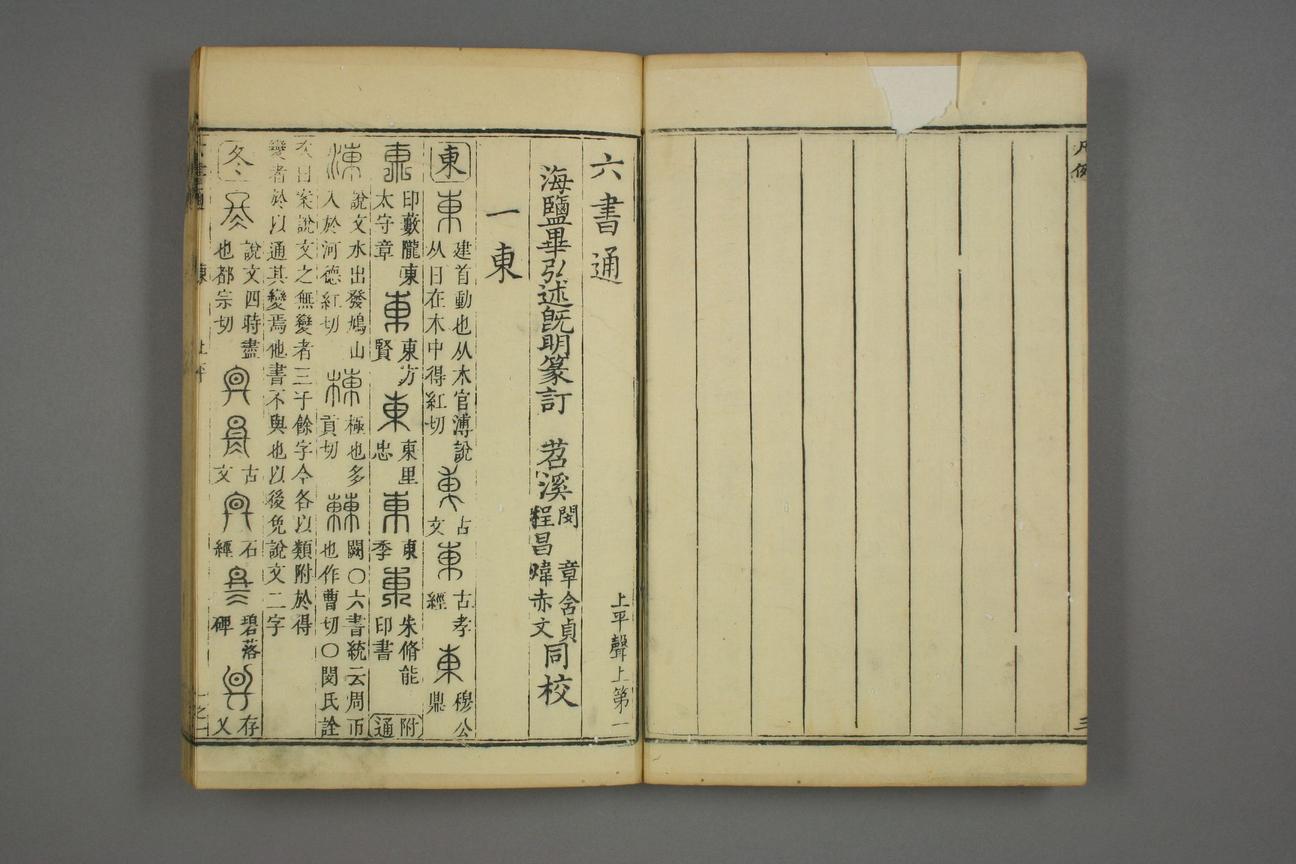 凡例
三
六書通
上平聲上第一
海鹽畢弘述既明篆訂 苕溪
閔 章含貞
程昌煒赤文
同校
一東
東 東 建首動也从木官溥說
从日在木中得紅切
古
文
東 古孝
經
東 穆公
鼎
印藪隴東
太守章
東 東方
賢
東 東里
忠
東 東
季
東 朱脩能
印書
附
通
涷 說文水出發鳩山
入於河德紅切
棟 極也多
貢切
𣗥 闕〇六書統云周帀
也作曹切〇閔氏詮
次曰案說文之無變者三于餘字今各以類附於得
變者於以通其變焉他書不與也以後免說文二字
冬 冬 說文四時盡
也都宗切
古
文
石
經
碧落
碑
存
乂
六書通
東
上平